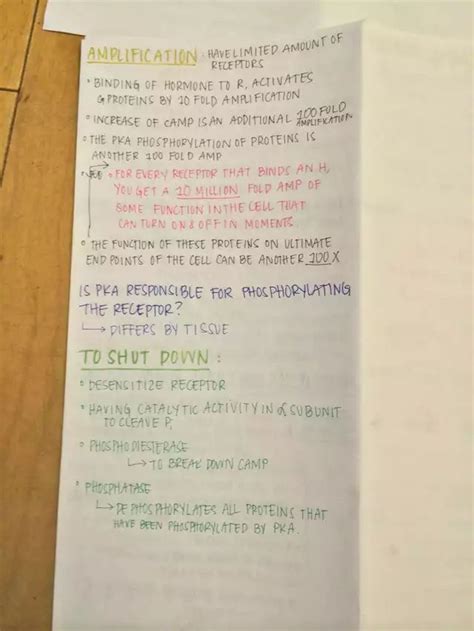 AMPLIFICATION : HAVE LIMITED AMOUNT OF
RECEPTORS
• BINDING OF HORMONE TO R, ACTIVATES
G PROTEINS BY 10 FOLD AMPLIFICATION
• INCREASE OF CAMP IS AN ADDITIONAL 100 FOLD
AMPLIFICATION
• THE PKA PHOSPHORYLATION OF PROTEINS IS
ANOTHER 100 FOLD AMP
• FOR EVERY RECEPTOR THAT BINDS AN H,
YOU GET A 10 MILLION FOLD AMP OF
SOME FUNCTION IN THE CELL THAT
CAN TURN ON & OFF IN MOMENTS.
• THE FUNCTION OF THESE PROTEINS ON ULTIMATE
END POINTS OF THE CELL CAN BE ANOTHER 100 X
IS PKA RESPONSIBLE FOR PHOSPHORYLATING
THE RECEPTOR?
↳ DIFFERS BY TISSUE
TO SHUT DOWN :
• DESENSITIZE RECEPTOR
• HAVING CATALYTIC ACTIVITY IN α SUBUNIT
TO CLEAVE Pi
• PHOSPHODIESTERASE
↳ TO BREAK DOWN CAMP
• PHOSPHATASE
↳ DEPHOSPHORYLATES ALL PROTEINS THAT
HAVE BEEN PHOSPHORYLATED BY PKA.